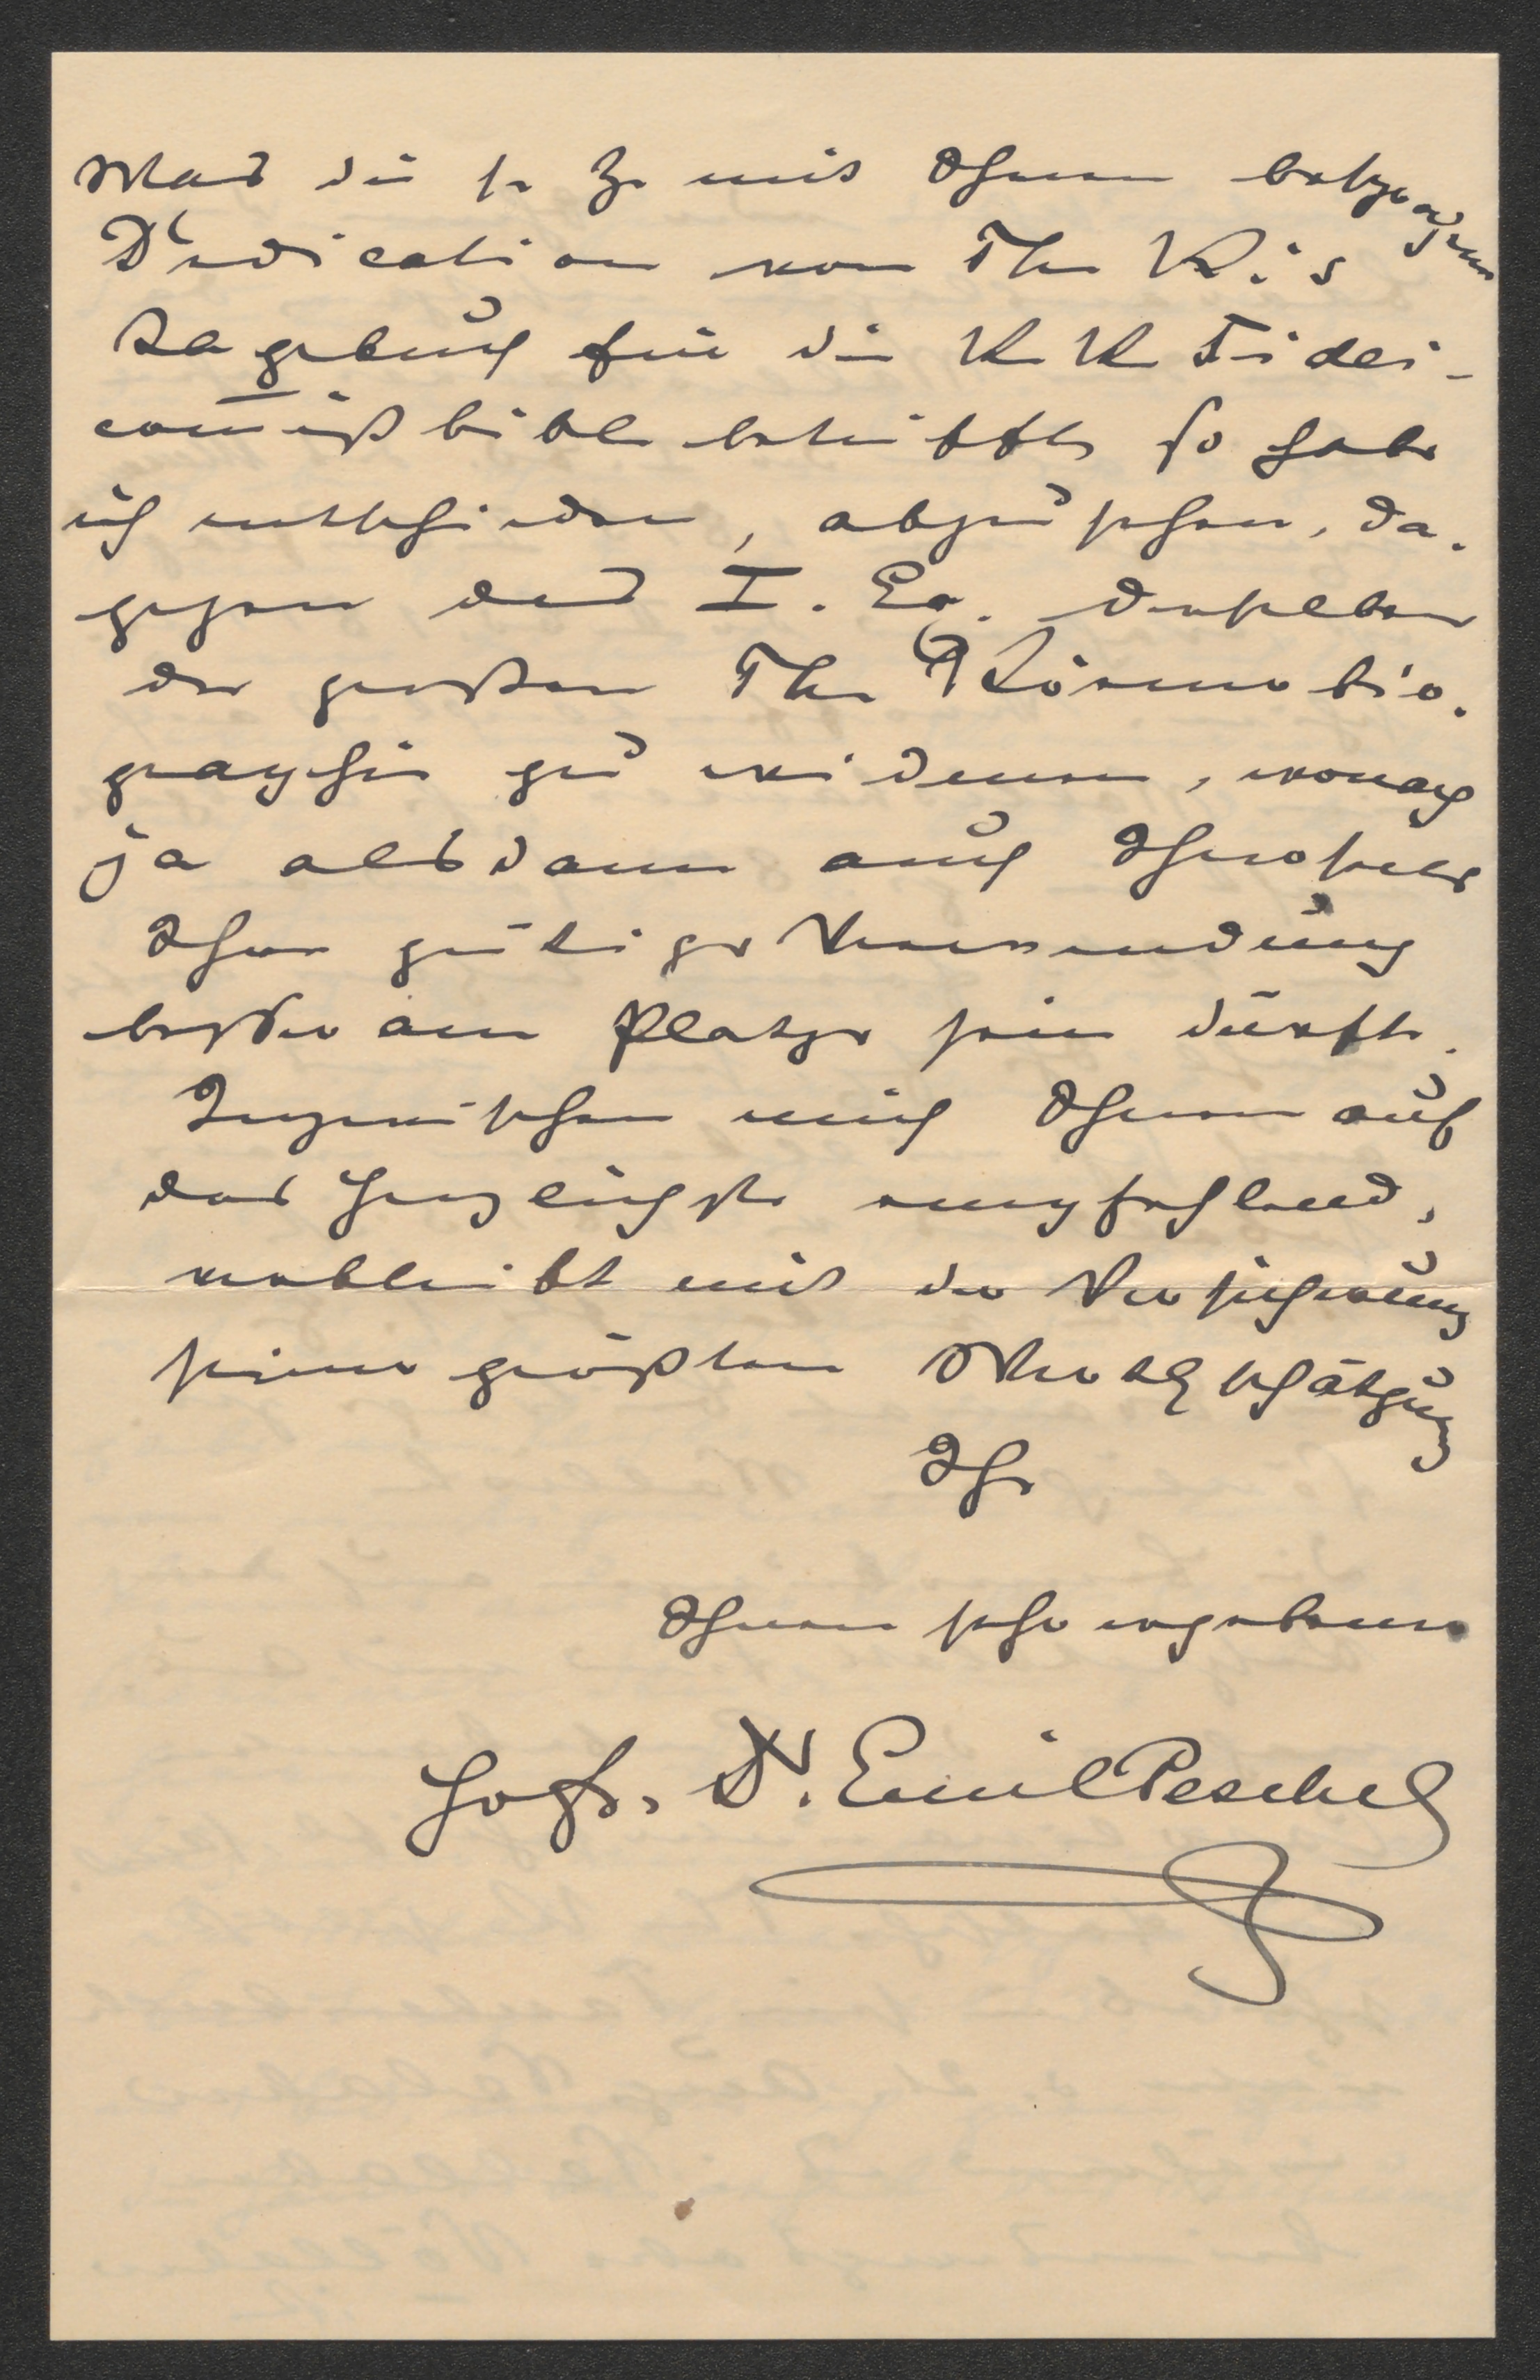 Was die s. Z. mit Ihnen besprochene
Dedication von Th. K.'s
Tagebuch für die K K Fidei-
com̅ißbibl. betrifft, so habe
ich entschieden, abzusehen, da-
gegen das I. Ex. derselben
der großen Th. Körnerbio-
graphie zu widmen, wonach
ja alsdann auch Ihrerseits
Ihre gütige Verwendung
besser am Platze sein dürfte.
Inzwischen mich Ihnen auf
das Herzlichste empfehlend,
verbleibt mit der Versicherung
seiner größten Werthschätzung
Ihr
Ihnen sehr ergebener
Hofr. Dr. Emil Peschel